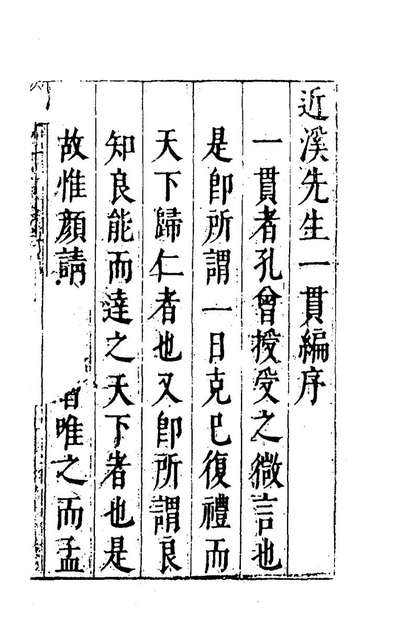 近溪先生一貫編序
一貫者孔曾授受之微言也
是即所謂一日克己復禮而
天下歸仁者也又即所謂良
知良能而達之天下者也是
故惟顏請唯之而孟